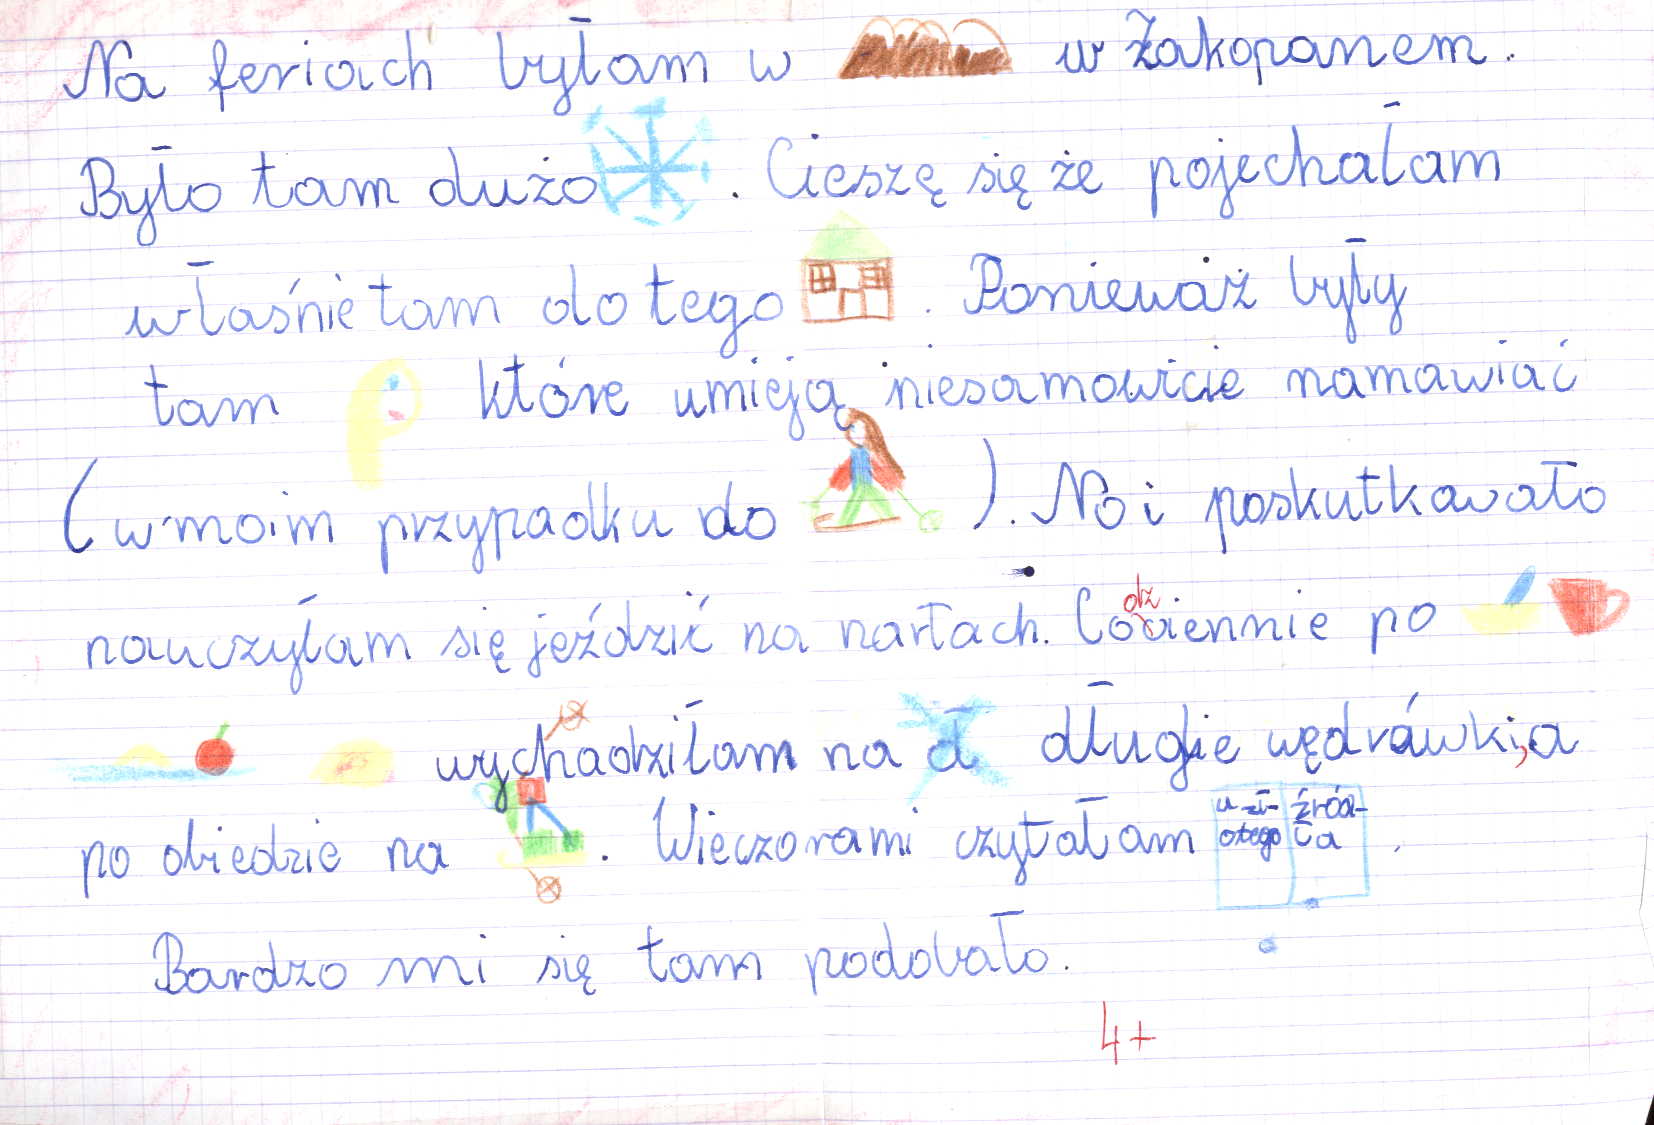 Na feriach byłam w w Zakopanem.
Było tam dużo . Cieszę się że pojechałam
właśnie tam do tego . Ponieważ były
tam które umieją niesamowicie namawiać
(w moim przypadku do ). No i poskutkowało
nauczyłam się jeździć na nartach. Codziennie po
wychodziłam na długie wędrówki, a
po obiedzie na . Wieczorami czytałam
u zł- źród-
otego ła .
Bardzo mi się tam podobało.
4+